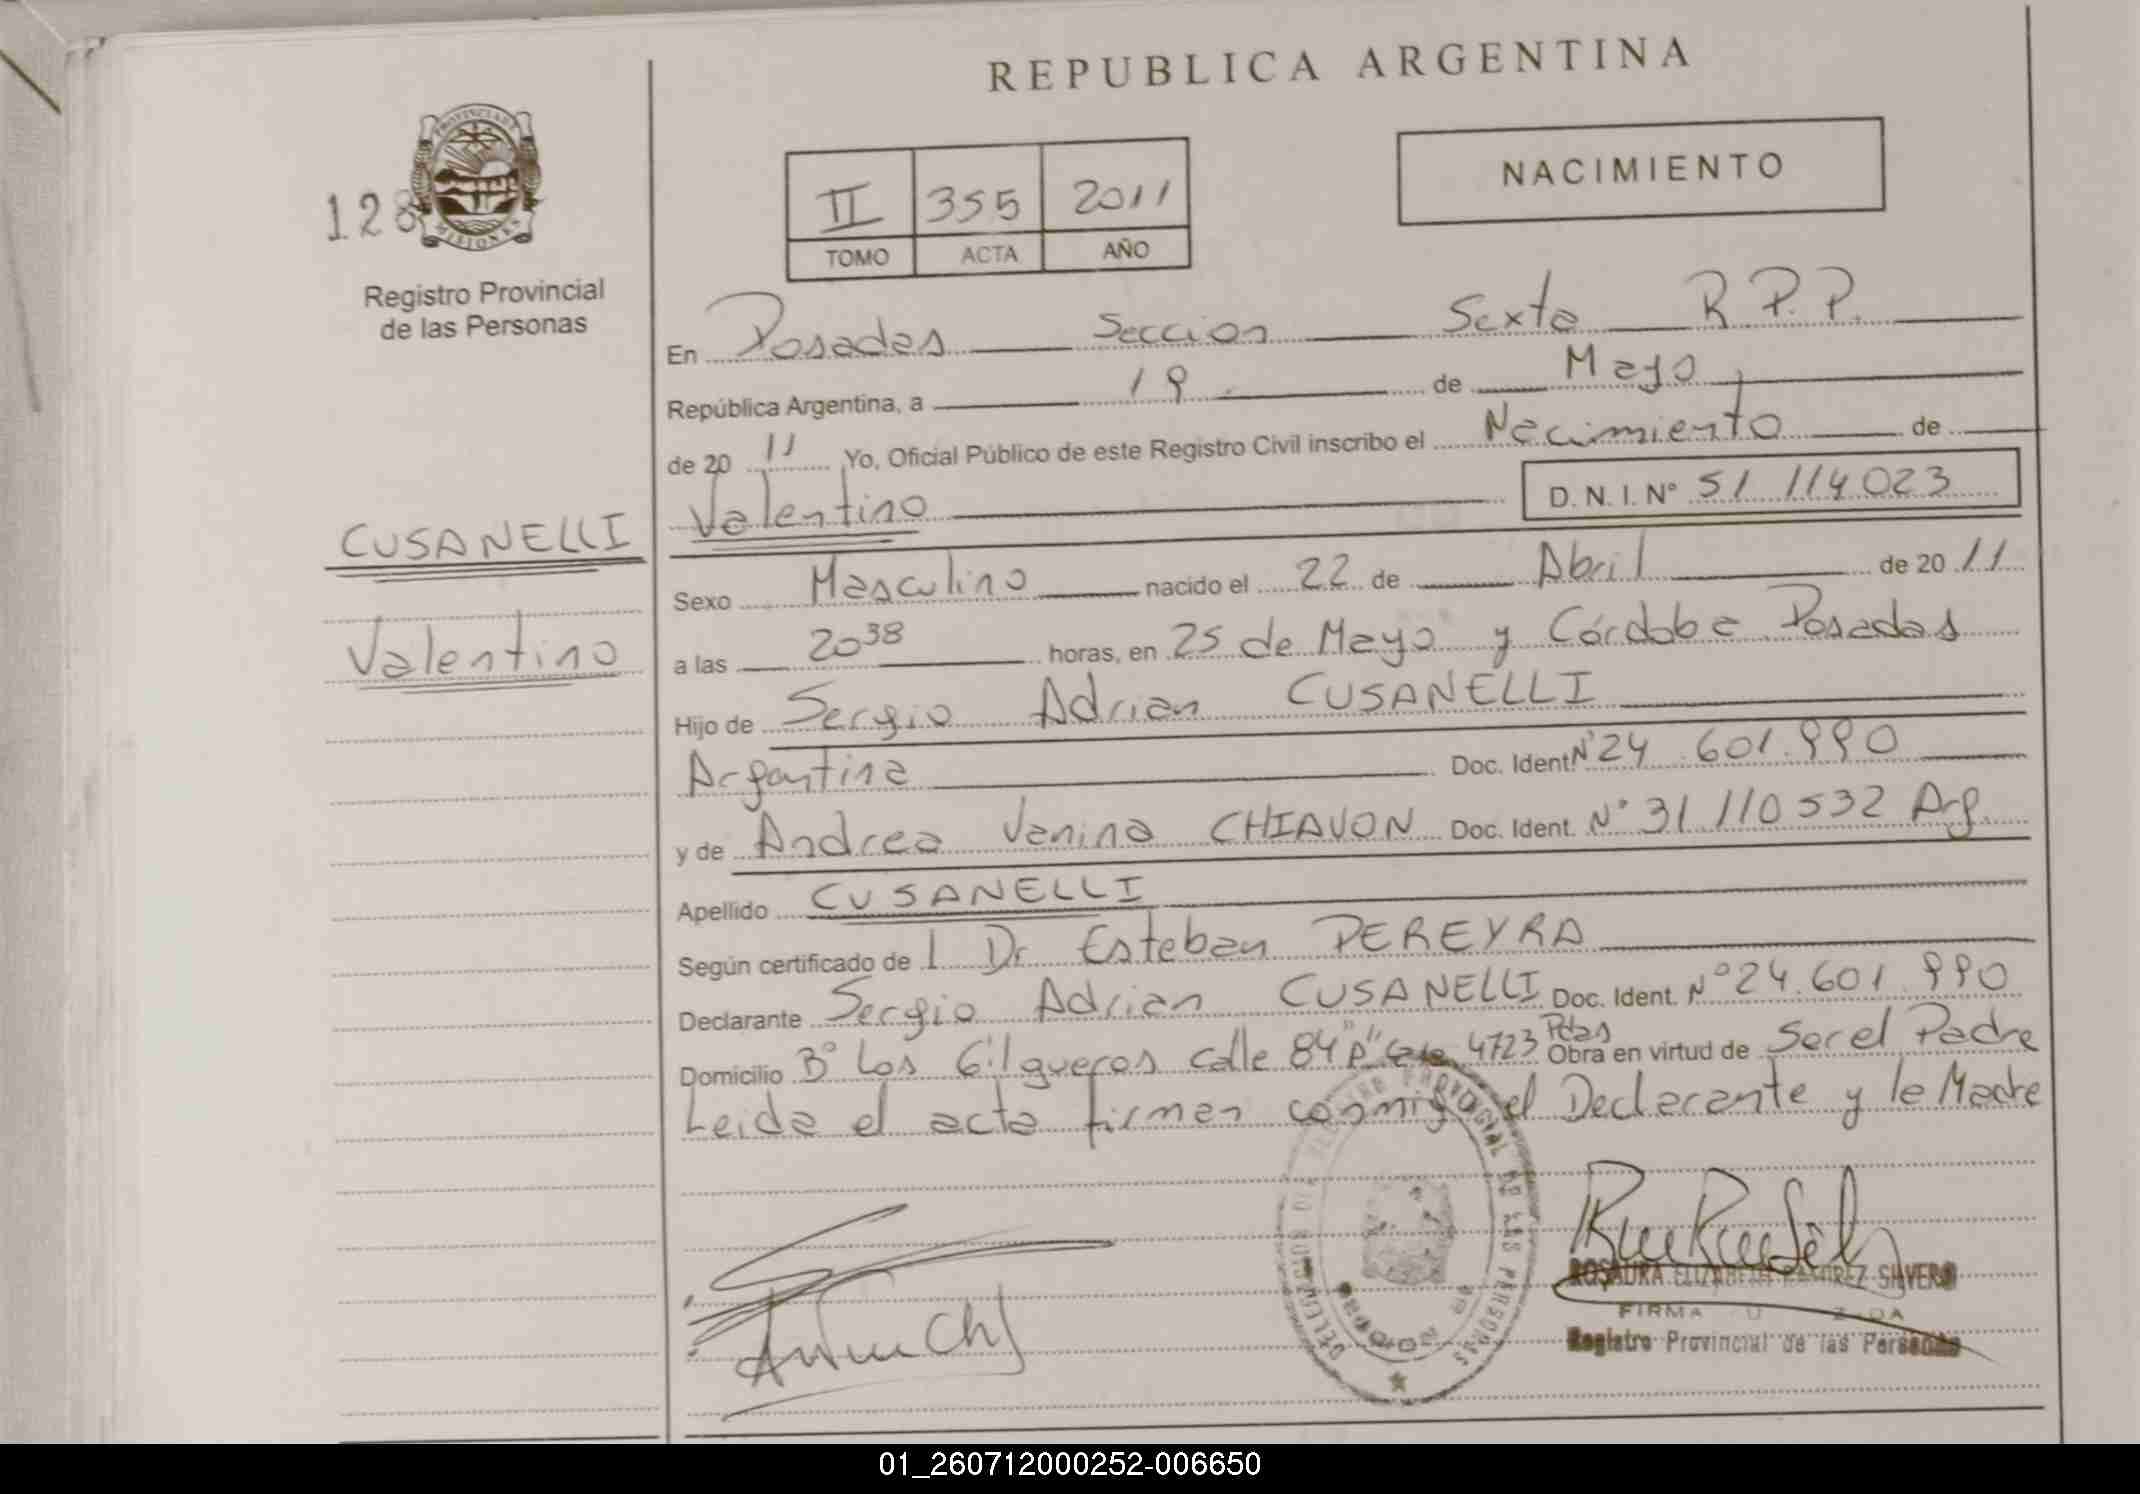 REPUBLICA ARGENTINA
NACIMIENTO
PROVINCIA DE
MISIONES
128
Registro Provincial
de las Personas
II 355 2011
TOMO ACTA AÑO
CUSANELLI
Valentino
En Posadas Seccion Sexta R.P.P.
República Argentina, a 19 de Mayo
de 20 11 Yo, Oficial Público de este Registro Civil inscribo el Nacimiento de
Valentino D. N. I. Nº 51 114023
Sexo Masculino nacido el 22 de Abril de 20 11
a las 20 38 horas, en 25 de Mayo y Córdoba Posadas
Hijo de Sergio Adrian CUSANELLI
Argentina Doc. Ident. Nº 24.601.990
y de Andrea Vanina CHIAVON Doc. Ident. Nº 31 110532 Arg.
Apellido CUSANELLI
Según certificado de l Dr Esteban PEREYRA
Declarante Sergio Adrian CUSANELLI Doc. Ident. Nº 24.601.990
Domicilio Bº Los Gilgueros calle 84 "A" Casa 4723 Pdas Obra en virtud de Ser el Padre
Leida el acta firman conmigo el Declarante y la Madre
REGISTRO PROVINCIAL DE LAS PERSONAS
ROSAURA ELIZABETH RAMIREZ SILVERO
FIRMA
Registro Provincial de las Personas
01_260712000252-006650